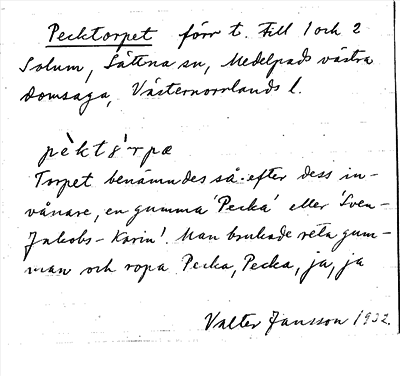 Pecktorpet förr t. till 1 och 2
Solum, Sättna sn, Medelpads västra
domsaga, Västernorrlands l.
pèktŏ́rpæ
Torpet benämndes så efter dess in-
vånare, en gumma 'Pecka' eller 'Sven-
Jakobs-Karin'. Man brukade reta gum-
man och ropa Pecka, Pecka, ja, ja
Valter Jansson 1932.